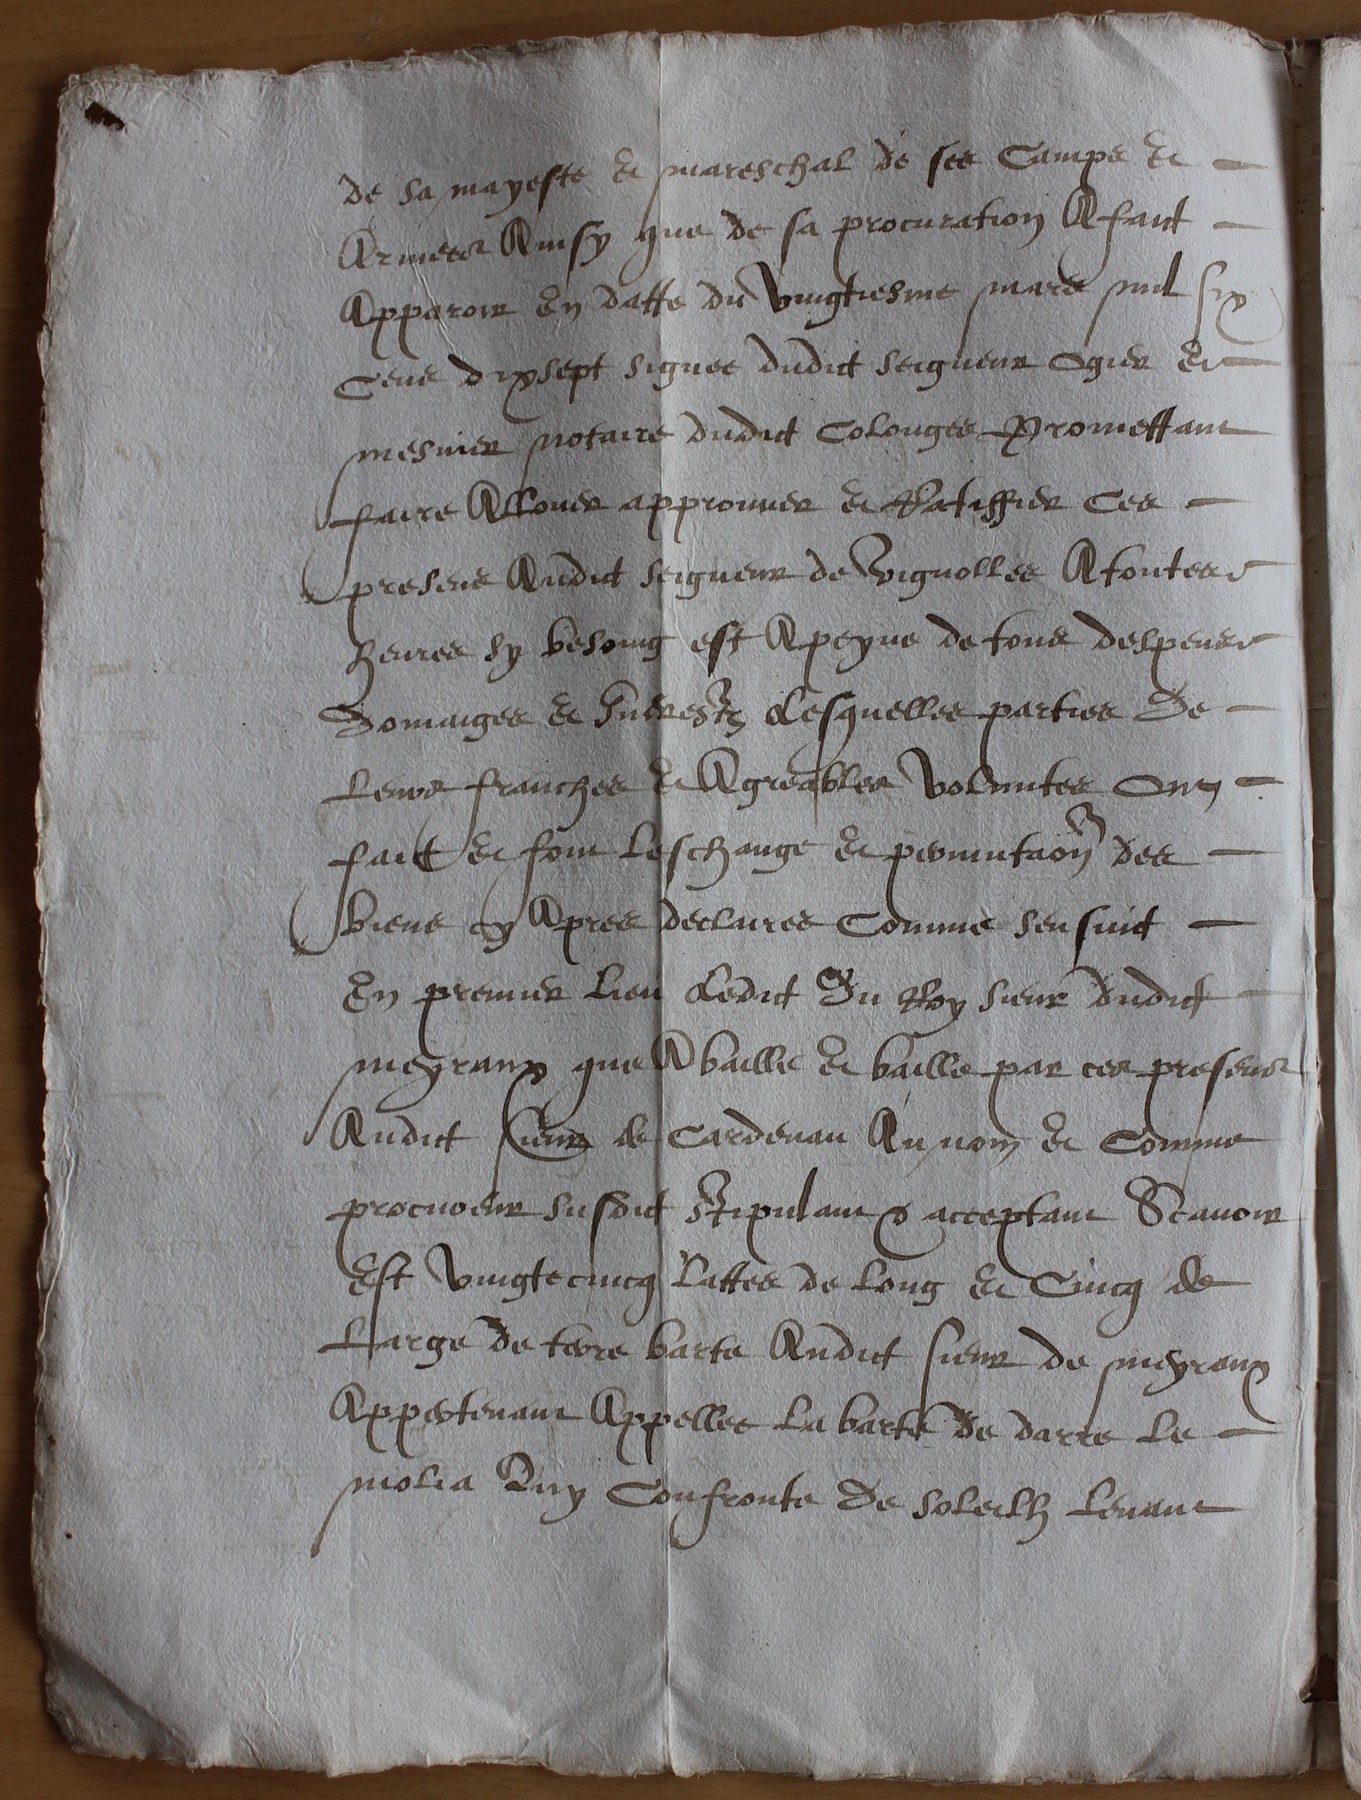 de sa mayeste et mareschal de ses Camps et
Armees Ainsy que de sa procuration A faict
Apparoir En datte du Vingtiesme mars mil six
Cens dixsept signee dudict seigneur Ogier et
mesmer notaire dudict Colonges Promettant
faire Allouer approuuer et Ratiffier Ces
presens Audict seigneur de Vignolles A toutes
heures sy besoing est A peyne de tous despens
Domaiges et Interestz Lesquelles parties De
Leurs franches et Agreables Voluntes Ont
faict et font Leschange et permutaon des
biens cy Apres declaires Comme sensuict
En premier Lieu Ledict Du Roy sieur dudict
meyranx que A baille et baille par ces presens
Audict sieur de Cardenau Au nom et Comme
procureur susdict Stipulant & acceptant Scauoir
Est Vingtecincq Lattes de Long et Cincq de
Large de terre barte Audict sieur de meyranx
Appertenant Appellee La barte de darre Le
molia Quy Confronte De soleilh Leuant